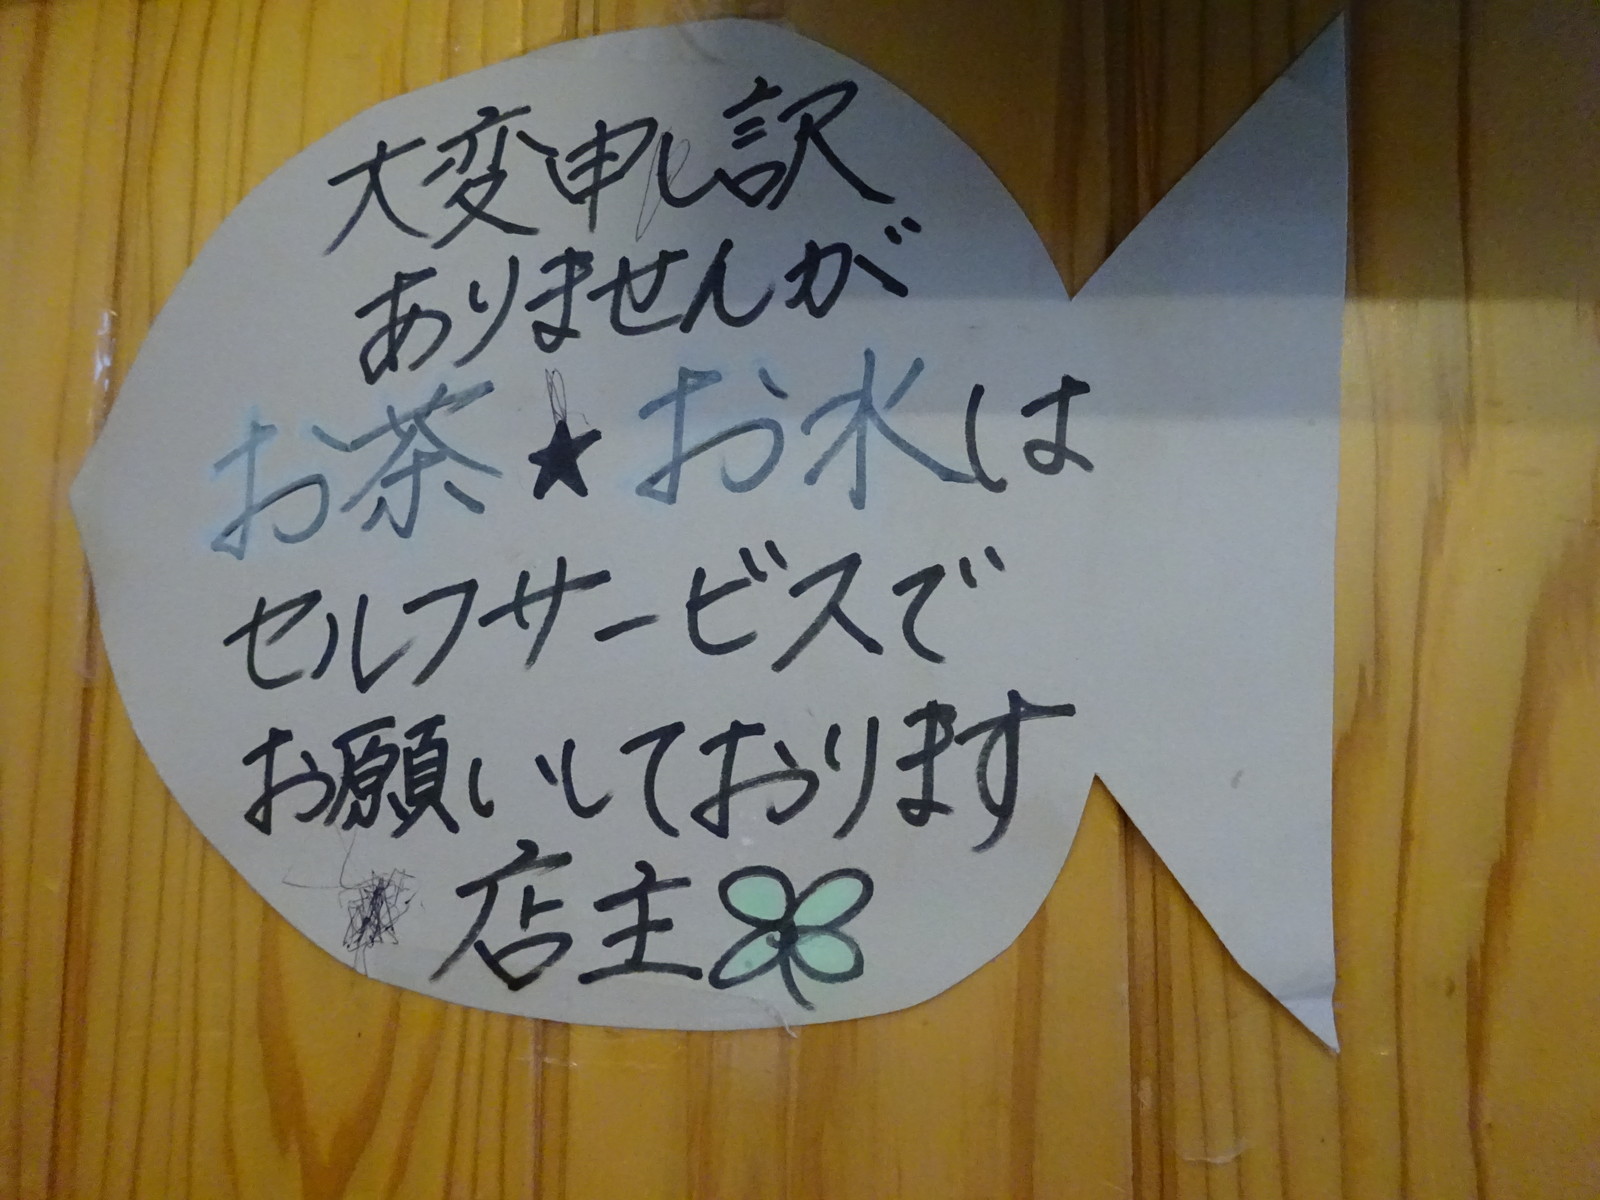 大変申し訳
ありませんが
お茶★お水は
セルフサービスで
お願いしております
店主